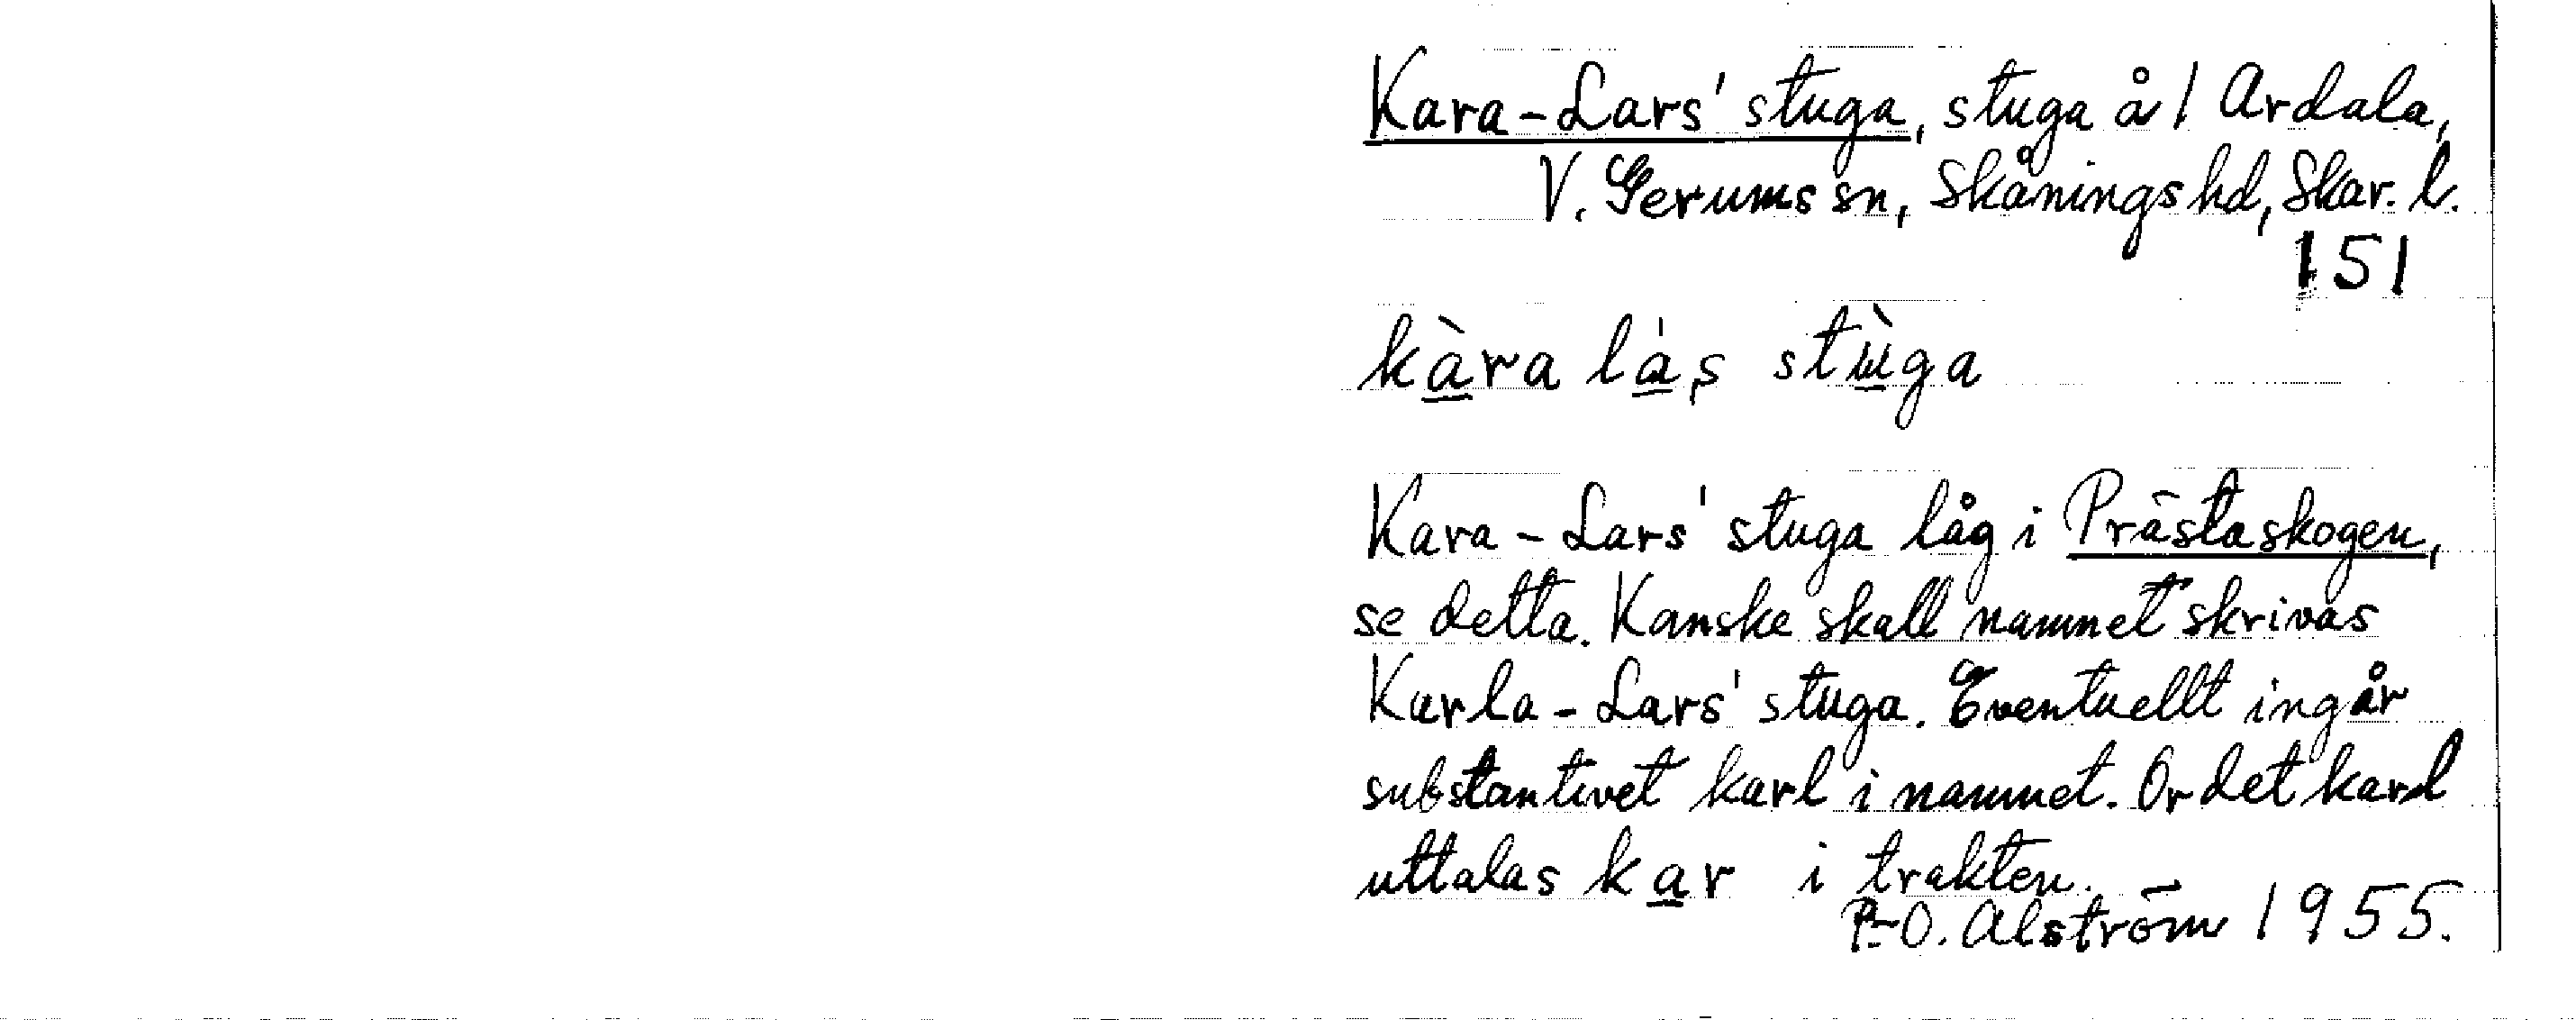 Kara-Lars' stuga, stuga å 1 Ardala,
V. Gerums sn, Skånings hd, Skar. l.
151
kàra lás stùga
Kara-Lars' stuga låg i Prästaskogen,
se detta. Kanske skall namnet skrivas
Karla-Lars' stuga. Eventuellt ingår
substantivet karl i namnet. Ordet karl
uttalas kar i trakten.
P-O. Alström 1955.